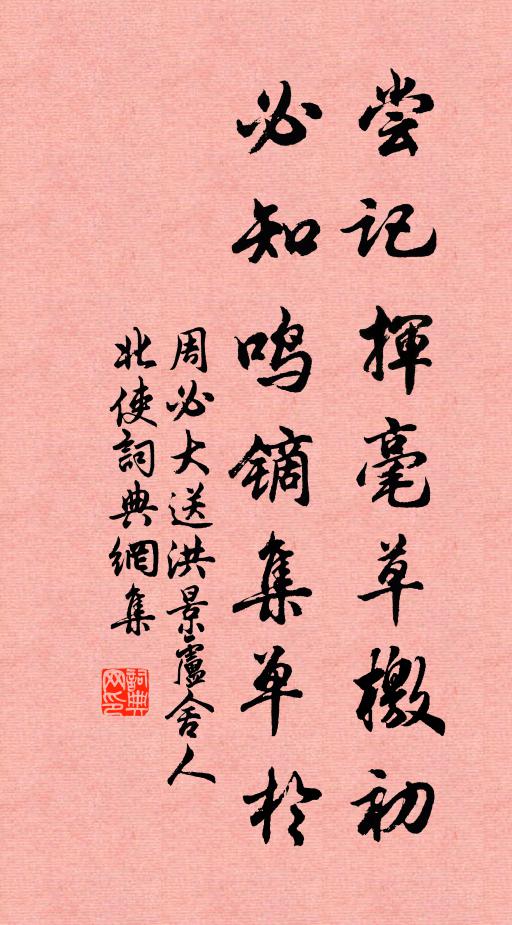 尝记挥毫草檄初
必知鸣镝集单于
周必大送洪景卢舍人
北使词典网集
词典网印